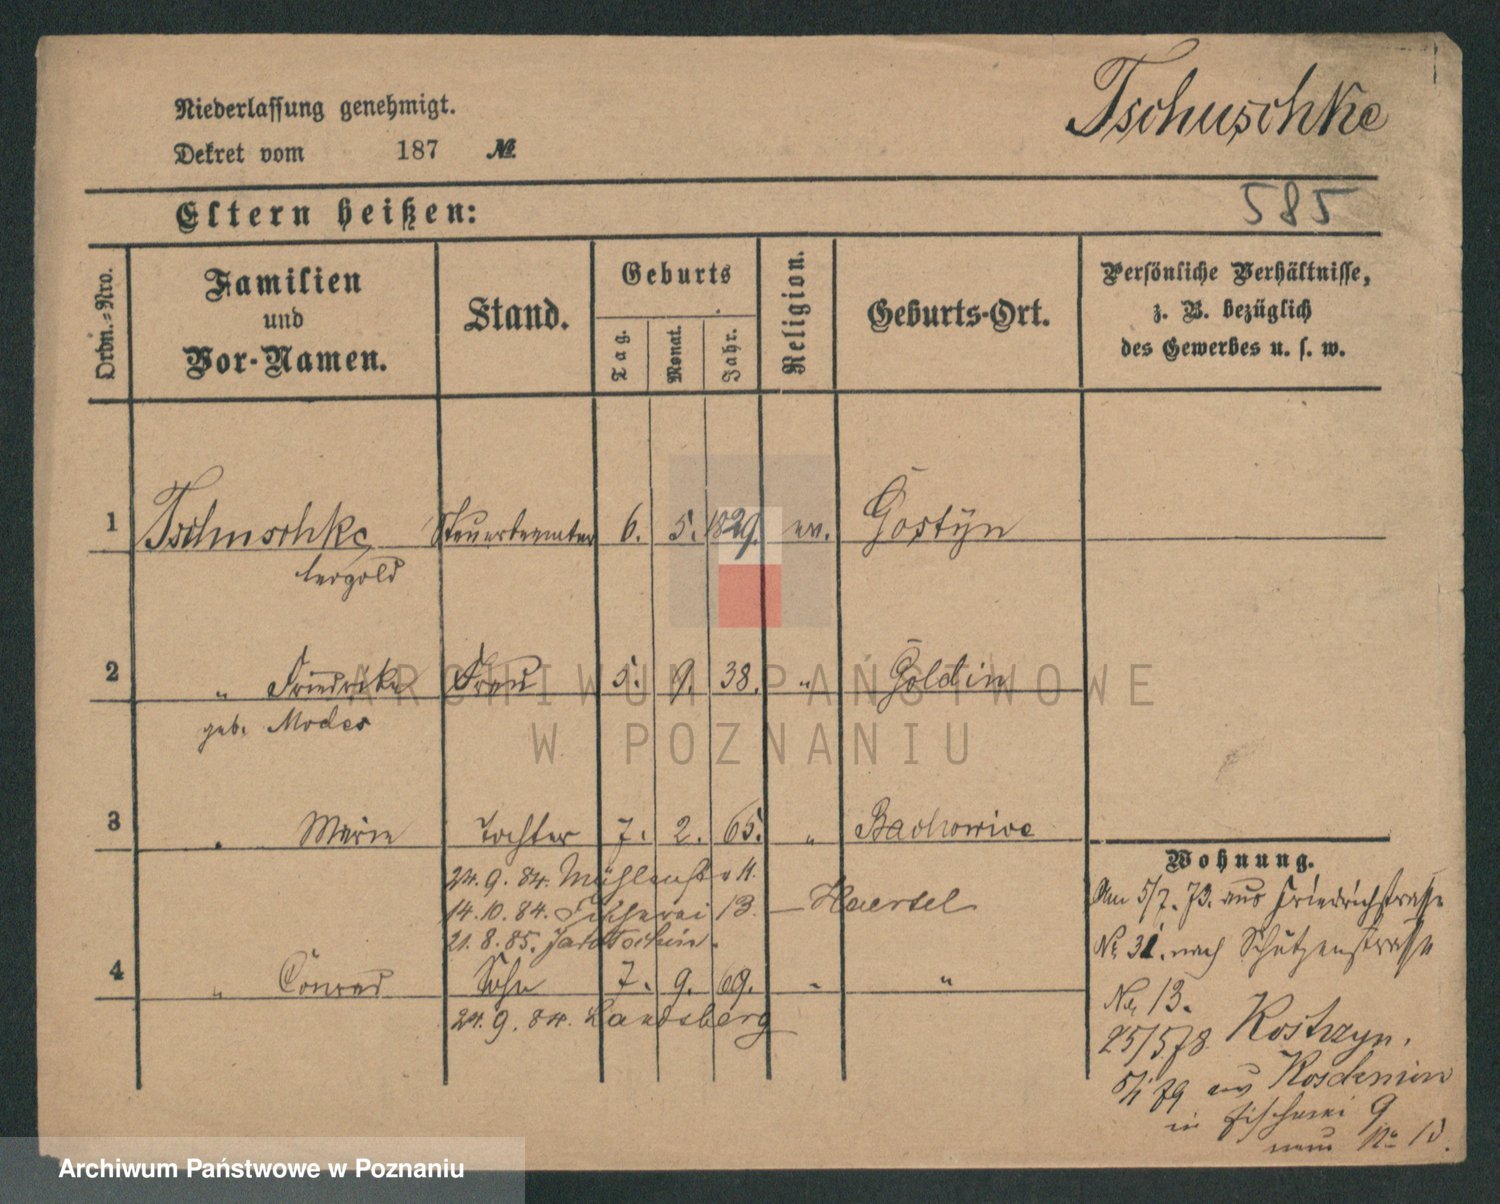 Tschuschke
Niederlassung genehmigt.
Dekret vom 187 №
585
Eltern heißen:
Ordn.=Nro.
Familien
und
Vor-Namen.
Stand.
Geburts
Tag.
Monat.
Jahr.
Religion.
Geburts-Ort.
Persönliche Verhältnisse,
z. B. bezüglich
des Gewerbes u. s. w.
1 Tschuschke Steuerbeamter 6. 5. 1829. ev. Gostÿn
2 " Friedrike Frau 5. 9. 38. " Goldin
geb. Modes
3 " Marie Tochter 7. 2. 65. "
24. 9. 84.
14. 10. 84. Fischerei 13. Haertel
21. 8. 85.
4 " Conrad Sohn 7. 9. 69. " "
24. 9. 84. Landsberg
Wohnung.
Am 5/7. 73. aus Friedrichstrasse
No. 31. nach Schützenstrasse
No. 13.
25/5 78 Kostrzyn.
aus
in Fischerei 9
neue No 13.
ARCHIWUM PAŃSTWOWE
W POZNANIU
Archiwum Państwowe w Poznaniu